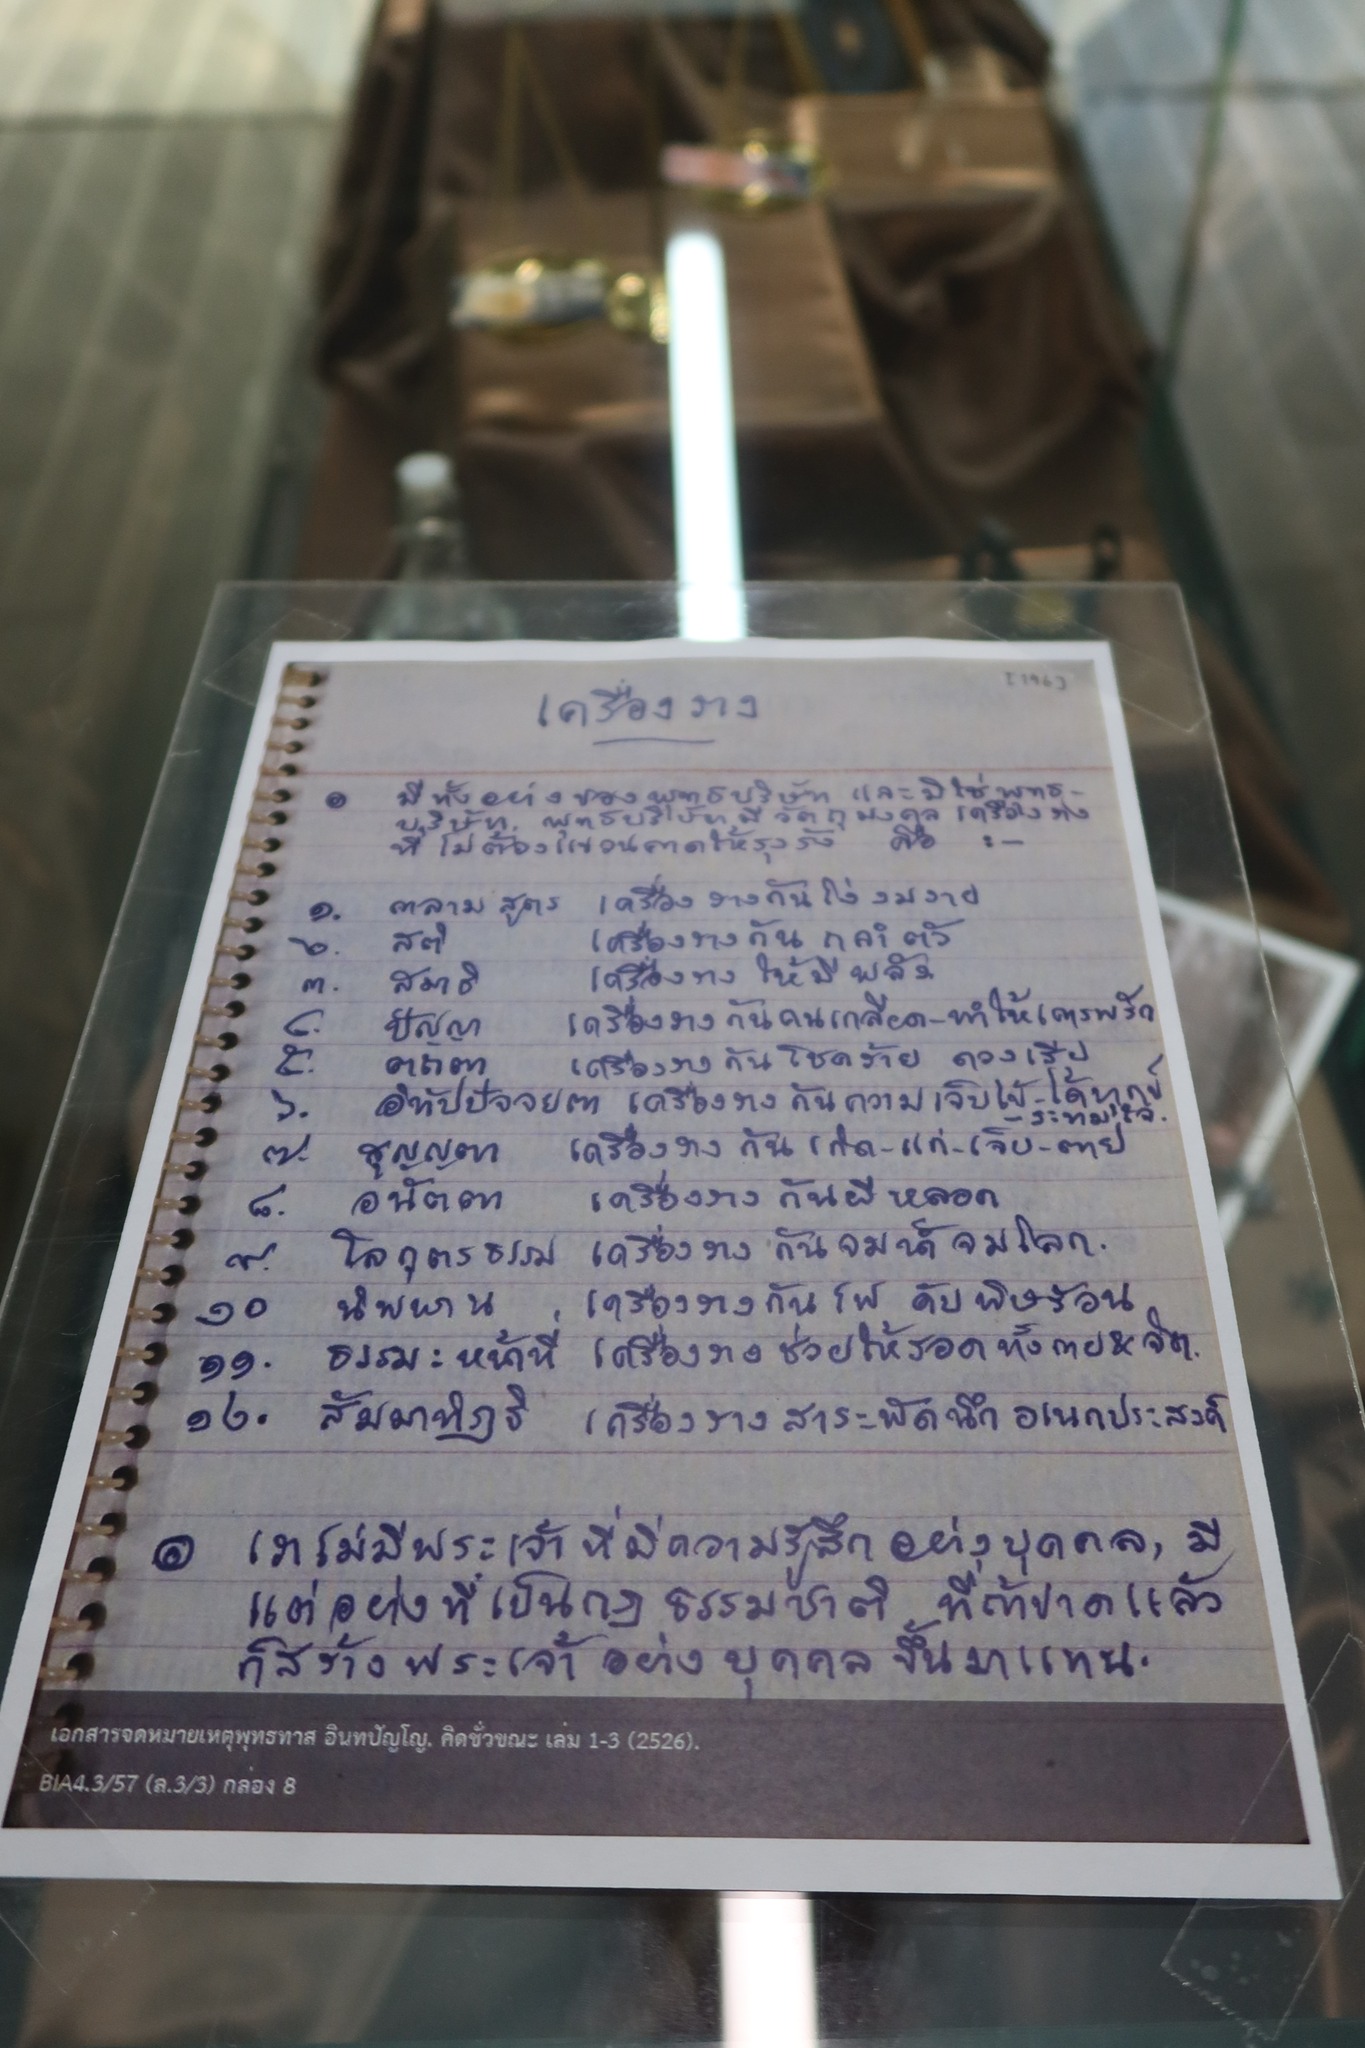 [196]
เครื่องราง
๏ มีทั้งอย่างของพุทธบริษัท และมิใช่พุทธ-
บริษัท. พุทธบริษัทมีวัตถุมงคล เครื่องราง
ที่ไม่ต้องแขวนคอให้รุงรัง คือ :-
๑. กลามสูตร เครื่องรางกันโง่งมงาย
๒. สติ เครื่องรางกันกลำตัว
๓. สมาธิ เครื่องรางให้มีพลัง
๔. ปัญญา เครื่องรางกันคนเกลียด-ทำให้เคารพรัก
๕. ตถตา เครื่องรางกันโชคร้าย ดวงเสีย
๖. อิทัปปัจจยตา เครื่องรางกันความเจ็บไข้-ได้ทุกข์
-ระทมใจ.
๗. สุญญตา เครื่องรางกันเกิด-แก่-เจ็บ-ตาย
๘. อนัตตา เครื่องรางกันผีหลอก
๙. โลกุตรธรรม เครื่องรางกันจมน้ำจมโลก.
๑๐ นิพพาน เครื่องรางกันไฟ ดับพิษร้อน
๑๑. ธรรมะหน้าที่ เครื่องรางช่วยให้รอดทั้งกาย&จิต.
๑๒. สัมมาทิฏฐิ เครื่องรางสาระพัดนึกอเนกประสงค์
๏ เราไม่มีพระเจ้าที่มีความรู้สึกอย่างบุคคล, มี
แต่อย่างที่เป็นกฎธรรมชาติ ที่ถ้าขาดแล้ว
ก็สร้างพระเจ้าอย่างบุคคลขึ้นมาแทน.
เอกสารจดหมายเหตุพุทธทาส อินทปัญโญ. คิดชั่วขณะ เล่ม 1-3 (2526).
BIA4.3/57 (ล.3/3) กล่อง 8